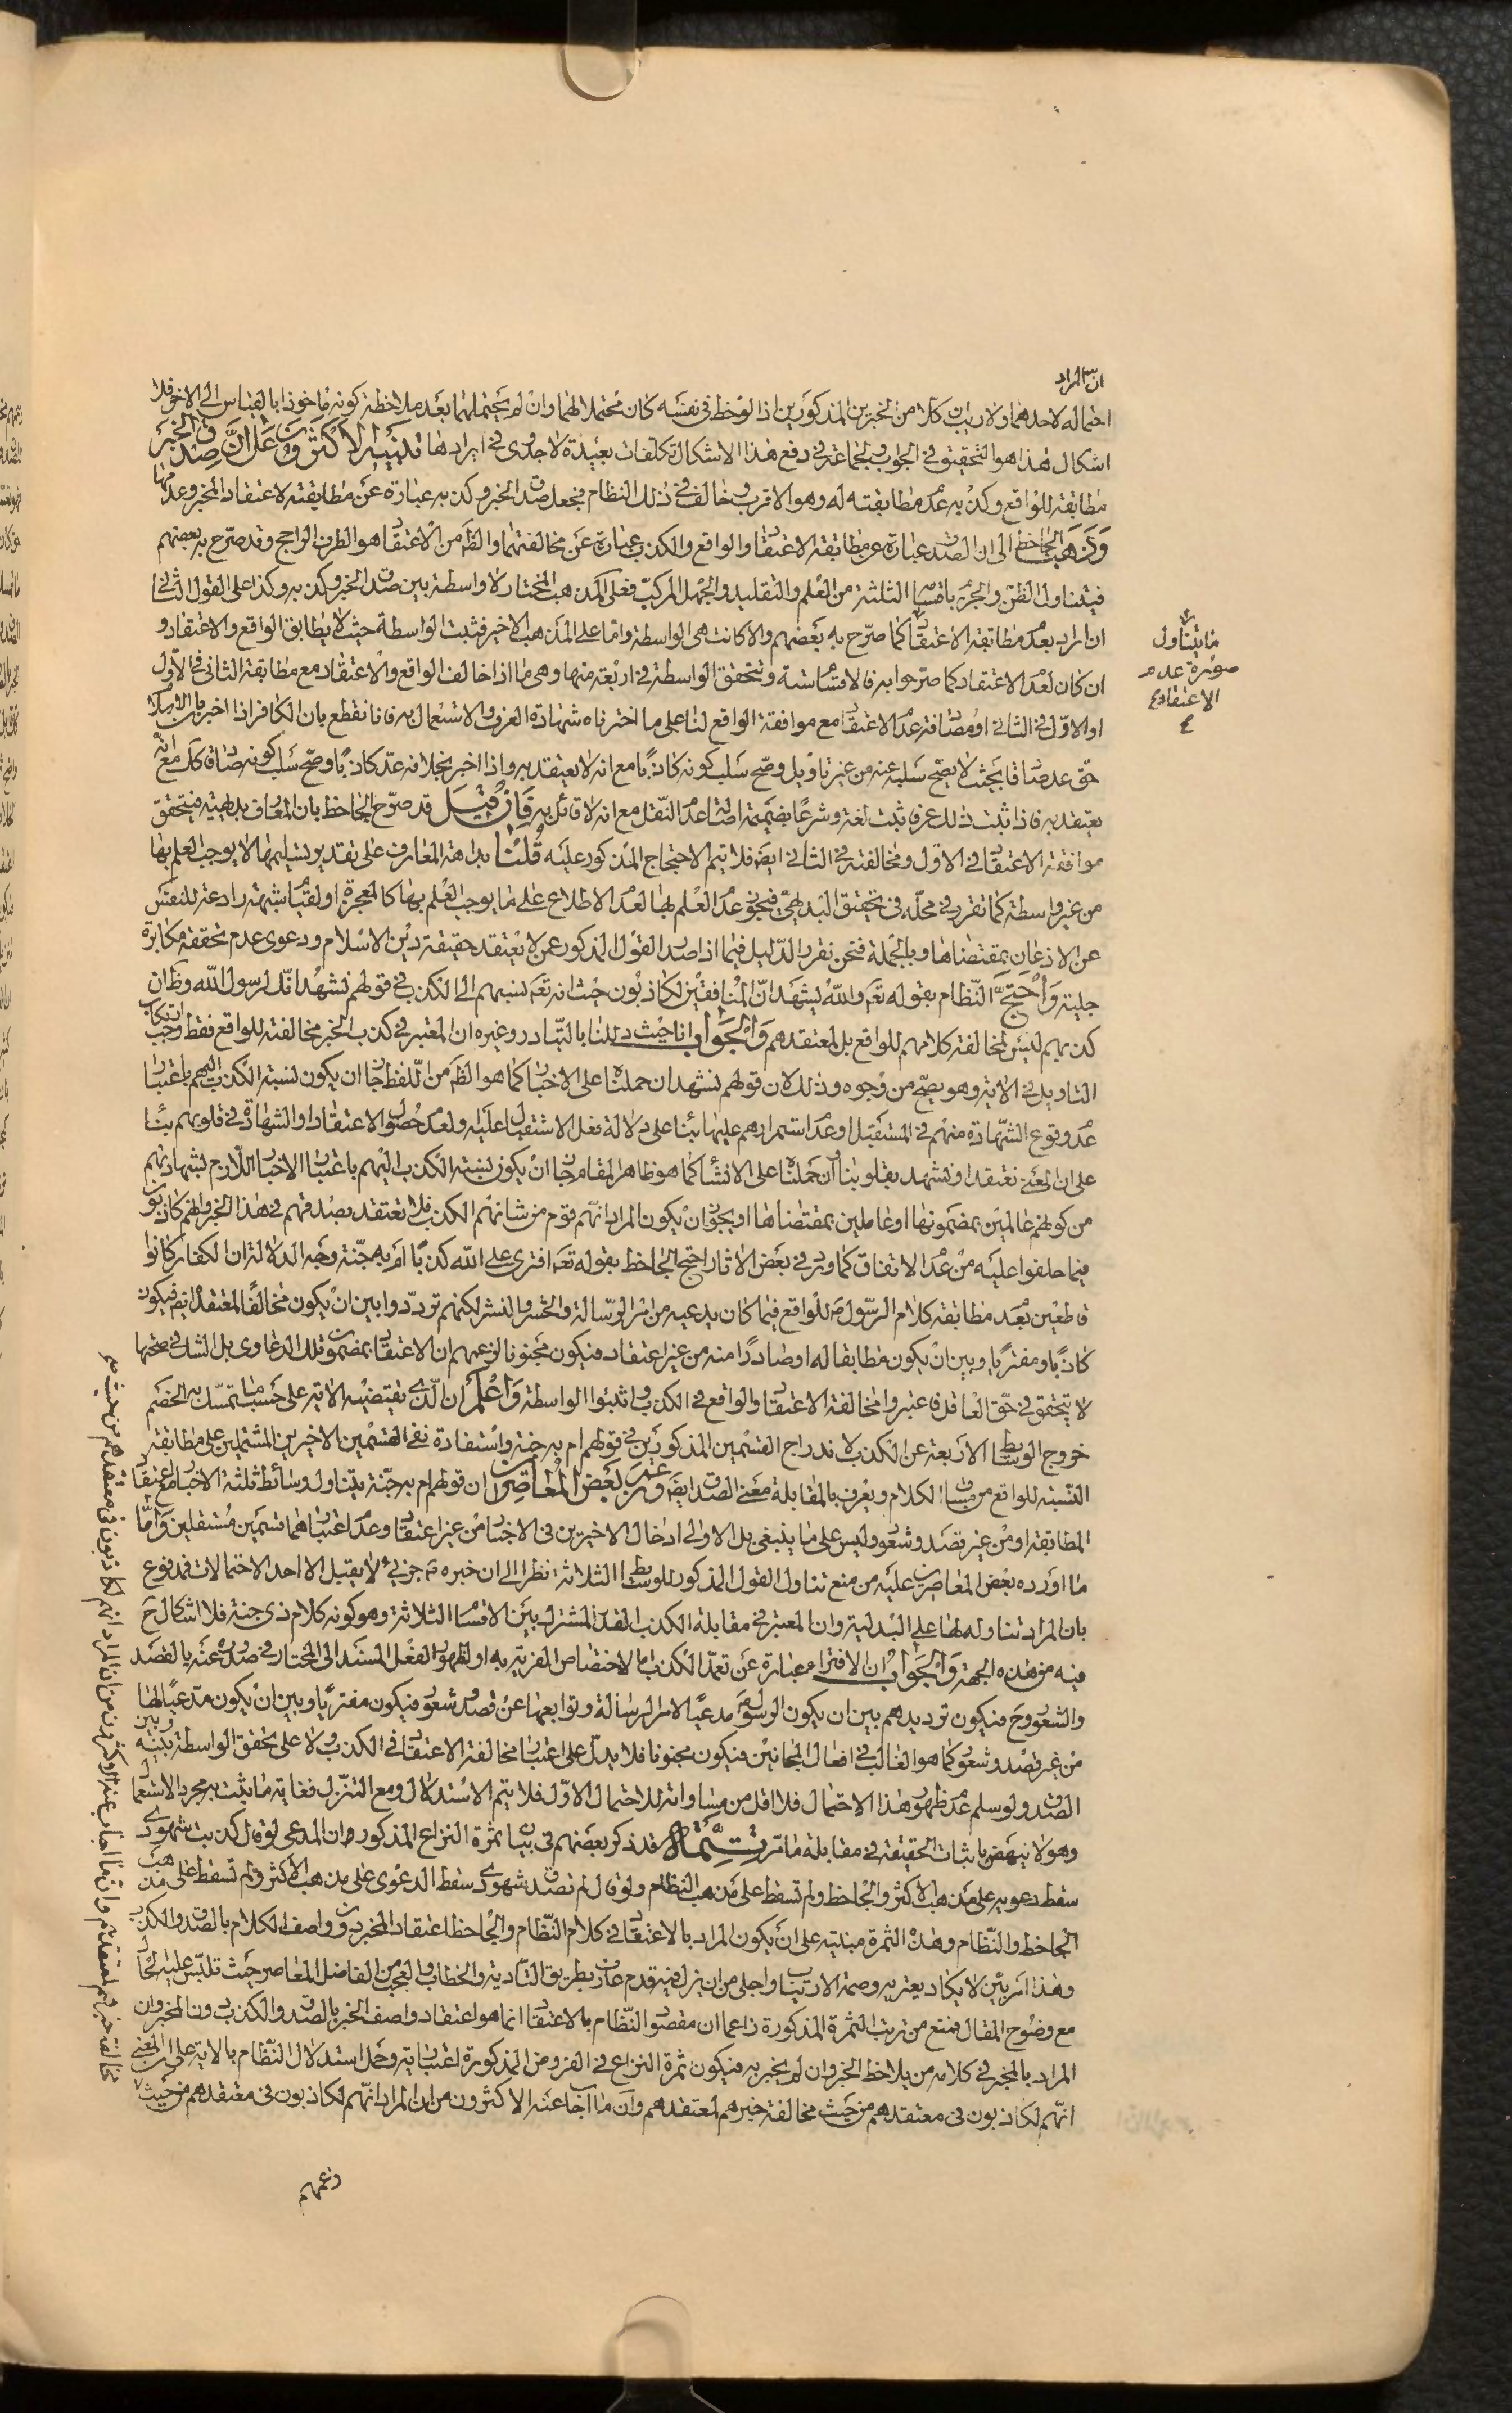 ان المراد
احتماله لاحدهما ولا ريب ان كلا من الخبرين المذكورين اذا لوحظ في نفسه كان محتملا لهما وان لم يحتملهما بعد ملاحظة كونه ماخوذا بالقياس الى الاخر فلا
اشكال هذا هو التحقيق في الجواب ولجماعة في دفع هذا الاشكال تكلفات بعيدة لا جدوى في ايرادها تذنيب الاكثرون على ان صدق الخبر
مطابقته للواقع وكذبه عدم مطابقته له وهو الاقرب وخالف في ذلك النظام فجعل صدق الخبر وكذبه عبارة عن مطابقته لاعتقاد المخبر وعدمها
وذهب الجاحظ الى ان الصدق عبارة عن مطابقة الاعتقاد والواقع والكذب عبارة عن مخالفتهما والظ من الاعتقاد هو الطرف الراجح وقد صرح به بعضهم
فيتناول الظن والجزم باقسامه الثلثة من العلم والتقليد والجهل المركب فعلى المذهب المختار لا واسطة بين صدق الخبر وكذبه وكذا على القول الثاني
ان اراد بعدم مطابقة الاعتقاد كما صرح به بعضهم والا كانت هي الواسطة واما على المذهب الاخير فثبت الواسطة حيث لا يطابق الواقع والاعتقاد و
ان كان لعدم الاعتقاد كما صرحوا به فالاقسام ستة وتتحقق الواسطة في اربعة منها وهي ما اذا خالف الواقع والاعتقاد مع مطابقة الثاني في الاول
او الاول في الثاني او مصادفة عدم الاعتقاد مع موافقة الواقع لنا على ما اخترناه شهادة العرف والاستعمال به فانا نقطع بان الكافر اذا اخبر بان الاسلام
حق عد صادقا بحيث لا يصح سلبه عنه من غير تاويل وصح سلب كونه كاذبا مع انه لا يعتقد به واذا اخبر بخلافه عد كاذبا وصح سلب كونه صادقا كل مع انه
يعتقد به فاذا ثبت ذلك عرفا ثبت لغة وشرعا بضميمة اصالة عدم النقل مع انه لا قائل به فان قيل قد صرح الجاحظ بان المعارف بديهية فيتحقق
موافقة الاعتقاد في الاول ومخالفته في الثاني ايض فلا يتم الاحتجاج المذكور عليه قلنا بداهة المعارف على تقدير تسليمها لا يوجب العلم بها
من غير واسطة كما تقرر في محله في تحقيق البديهي فيجوز عدم العلم بها لعدم الاطلاع على ما يوجب العلم بها كالمعجزة او لقيام شبهة رادعة للنفس
عن الاذعان بمقتضاها وبالجملة فنحن نقرر الدليل فيما اذا صدر القول المذكور عمن لا يعتقد حقيقة دين الاسلام ودعوى عدم تحققه مكابرة
جلية واحتج النظام بقوله تعم والله يشهد ان المنافقين لكاذبون حيث انه تعم نسبهم الى الكذب في قولهم نشهد انك لرسول الله وظ ان
كذبهم ليس لمخالفة كلامهم للواقع بل لمعتقدهم والجواب انا حيث دللنا بالتبادر وغيره ان المعتبر في كذب الخبر مخالفته للواقع فقط وجب ارتكاب
التاويل في الاية وهو يصح من وجوه وذلك لان قولهم نشهد ان حملناه على الاخبار كما هو الظ من اللفظ جاز ان يكون نسبة الكذب اليهم باعتبار
عدم وقوع الشهادة منهم في المستقبل او عدم استمرارهم عليها بناء على دلالة فعل الاستقبال عليه ولعدم حصول الاعتقاد او الشهادة في قلوبهم بناء
على ان المعنى نعتقد او نشهد بقلوبنا وان حملناه على الانشاء كما هو ظاهر المقام جاز ان يكون نسبة الكذب اليهم باعتبار الاخبار اللازم لشهادتهم
من كونهم عالمين بمضمونها او عاملين بمقتضاها او يجوز ان يكون المراد انهم قوم من شانهم الكذب فلا تعتقد بصدقهم في هذا الخبر وانهم كاذبون
فيما حلفوا عليه من عدم الانفاق كما ورد في بعض الاثار احتج الجاحظ بقوله تعم افترى على الله كذبا ام به جنة وجه الدلالة ان الكفار كانوا
قاطعين بعدم مطابقة كلام الرسول ص للواقع فيما كان يدعيه من امر الرسالة والحشر والنشر لكنهم ترددوا بين ان يكون مخالفا لمعتقده ايض فيكون
كاذبا ومفتريا وبين ان يكون مطابقا له او صادرا منه من غير اعتقاد فيكون مجنونا لزعمهم ان الاعتقاد بمضمون تلك الدعاوى بل الشك في صحتها
لا يتحقق في حق العاقل فاعتبروا مخالفة الاعتقاد والواقع في الكذب واثبتوا الواسطة واعلم ان الذي يقتضيه الاية على حسب ما تمسك به الخصم
خروج الوسائط الاربعة عن الكذب لاندراج القسمين المذكورين في قولهم ام به جنة واستفادة نفي القسمين الاخيرين المشتملين على مطابقة
النسبة للواقع من مساق الكلام ويعرف بالمقابلة معنى الصدق ايض وعن بعض المعاصرين ان قولهم ام به جنة يتناول وسائط ثلثة الاخبار مع اعتقاد
المطابقة او من غير قصد وشعور وليس على ما ينبغي بل الاولى ادخال الاخيرين في الاخبار من غير اعتقاد وعدم اعتبارهما قسمين مستقلين واما
ما اورده بعض المعاصرين عليه من منع تناول القول المذكور للوسائط الثلاثة نظرا الى ان خبره ص جزئي لا يقبل الا احد الاحتمالات فمدفوع
بان المراد تناوله لها على البدلية وان المعتبر في مقابلة الكذب القدر المشترك بين الاقسام الثلاثة وهو كونه كلام ذي جنة فلا اشكال ح
فيه من هذه الجهة والجواب ان الافتراء عبارة عن تعمد الكذب اما لاختصاص الفرية به او لظهور الفعل المسند الى المختار في صدوره عنه بالقصد
والشعور وح فيكون ترديدهم بين ان يكون الرسول ص مدعيا لامر الرسالة وتوابعها عن قصد وشعور فيكون مفتريا وبين ان يكون مدعيا لها
من غير قصد وشعور كما هو الغالب في افعال المجانين فيكون مجنونا فلا يدل على اعتبار مخالفة الاعتقاد في الكذب ولا على تحقق الواسطة بينه وبين
الصدق ولو سلم عدم ظهور هذا الاحتمال فلا اقل من مساواته للاحتمال الاول فلا يتم الاستدلال ومع التنزل فغاية ما يثبت به مجرد الاستعمال
وهو لا ينهض باثبات الحقيقة في مقابلة ما مر تتمة قد ذكر بعضهم في بيان ثمرة النزاع المذكور ان المدعي لو قال كذبت شهودي
سقط دعويه على مذهب الاكثر والجاحظ ولم تسقط على مذهب النظام ولو قال لم تصدق شهودي سقط الدعوى على مذهب الاكثر ولم تسقط على مذهب
الجاحظ والنظام وهذه الثمرة مبنية على ان يكون المراد بالاعتقاد في كلام النظام والجاحظ اعتقاد المخبر دون واصف الكلام بالصدق والكذب
وهذا امر بين لا يكاد يعتريه وصمة الارتياب واجلى من ان يزل فيه قدم عارف بطريق التادية والخطاب والعجب من الفاضل المعاصر حيث تلبس عليه الحال
مع وضوح المقال فمنع من ترتب الثمرة المذكورة زاعما ان مقصود النظام بالاعتقاد انما هو اعتقاد واصف الخبر بالصدق والكذب دون المخبر وان
المراد بالمخبر في كلامه من يلاحظ الخبر وان لم يخبر به فيكون ثمرة النزاع في الفروض المذكورة اعتبارية وحمل استدلال النظام بالاية على ان المعنى
انهم لكاذبون في معتقدهم من حيث مخالفة خبرهم لمعتقدهم وان ما اجاب عنه الاكثرون من ان المراد انهم لكاذبون في معتقدهم من حيث
وعمهم
ما يتناول
صورة عدم
الاعتقاد